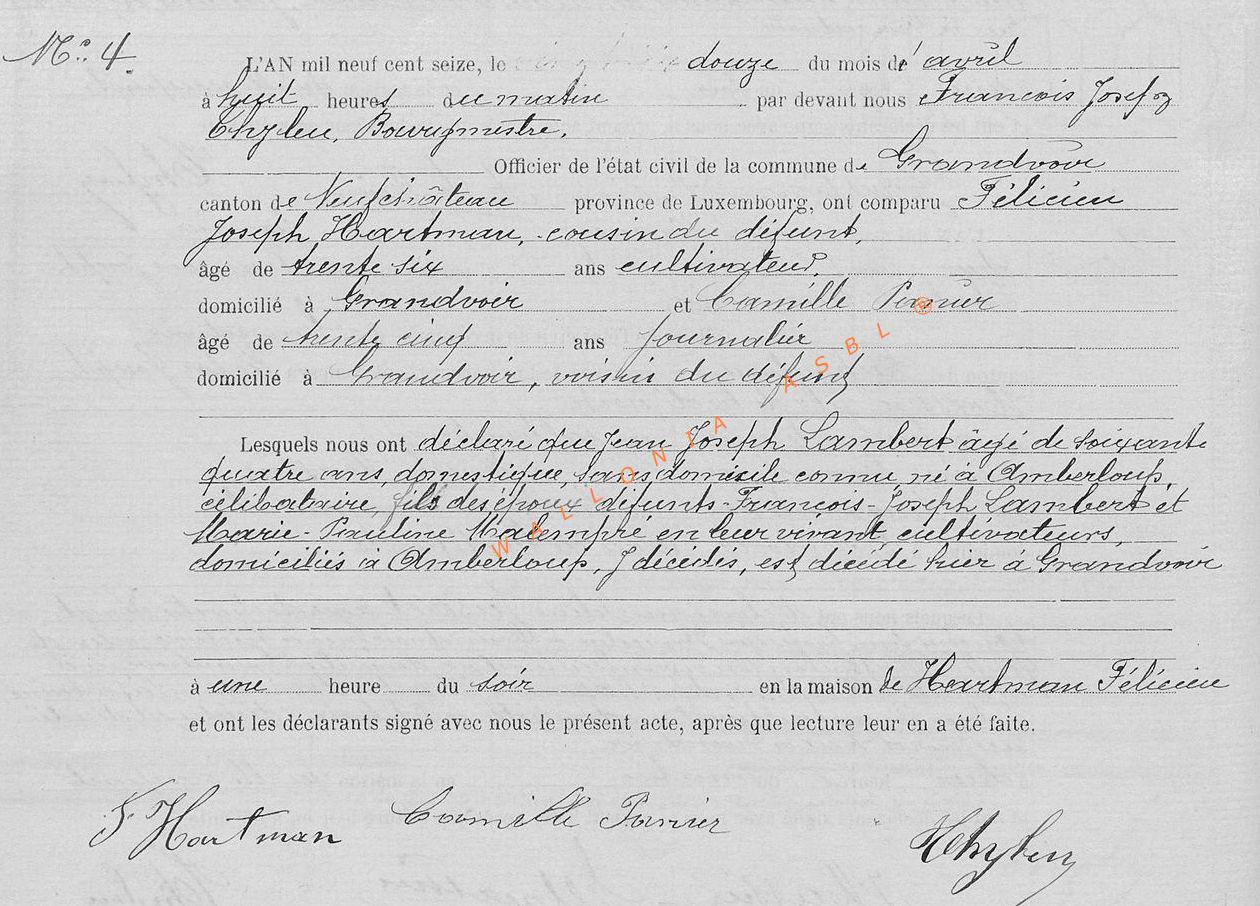 N° 4.
L'AN mil neuf cent seize, le douze du mois d'avril
à huit heures du matin par devant nous François Josef
Bourgmestre,
Officier de l'état civil de la commune de Grandvoir
canton de Neufchâteau province de Luxembourg, ont comparu Félicien
Joseph Hartman, cousin du défunt,
âgé de trente six ans cultivateur,
domicilié à Grandvoir et Camille
âgé de trente cinq ans journalier
domicilié à Grandvoir, voisin du défunt
Lesquels nous ont déclaré que Jean Joseph Lambert âgé de soixante
quatre ans, domestique, sans domicile connu, né à Amberloup,
célibataire, fils des époux défunts François-Joseph Lambert et
Marie-Pauline Malempré en leur vivant cultivateurs,
domiciliés à Amberloup, y décédés, est décédé hier à Grandvoir
à une heure du soir en la maison de Hartman Félicien
et ont les déclarants signé avec nous le présent acte, après que lecture leur en a été faite.
F Hartman Camille
WALLONIA ASBL ®